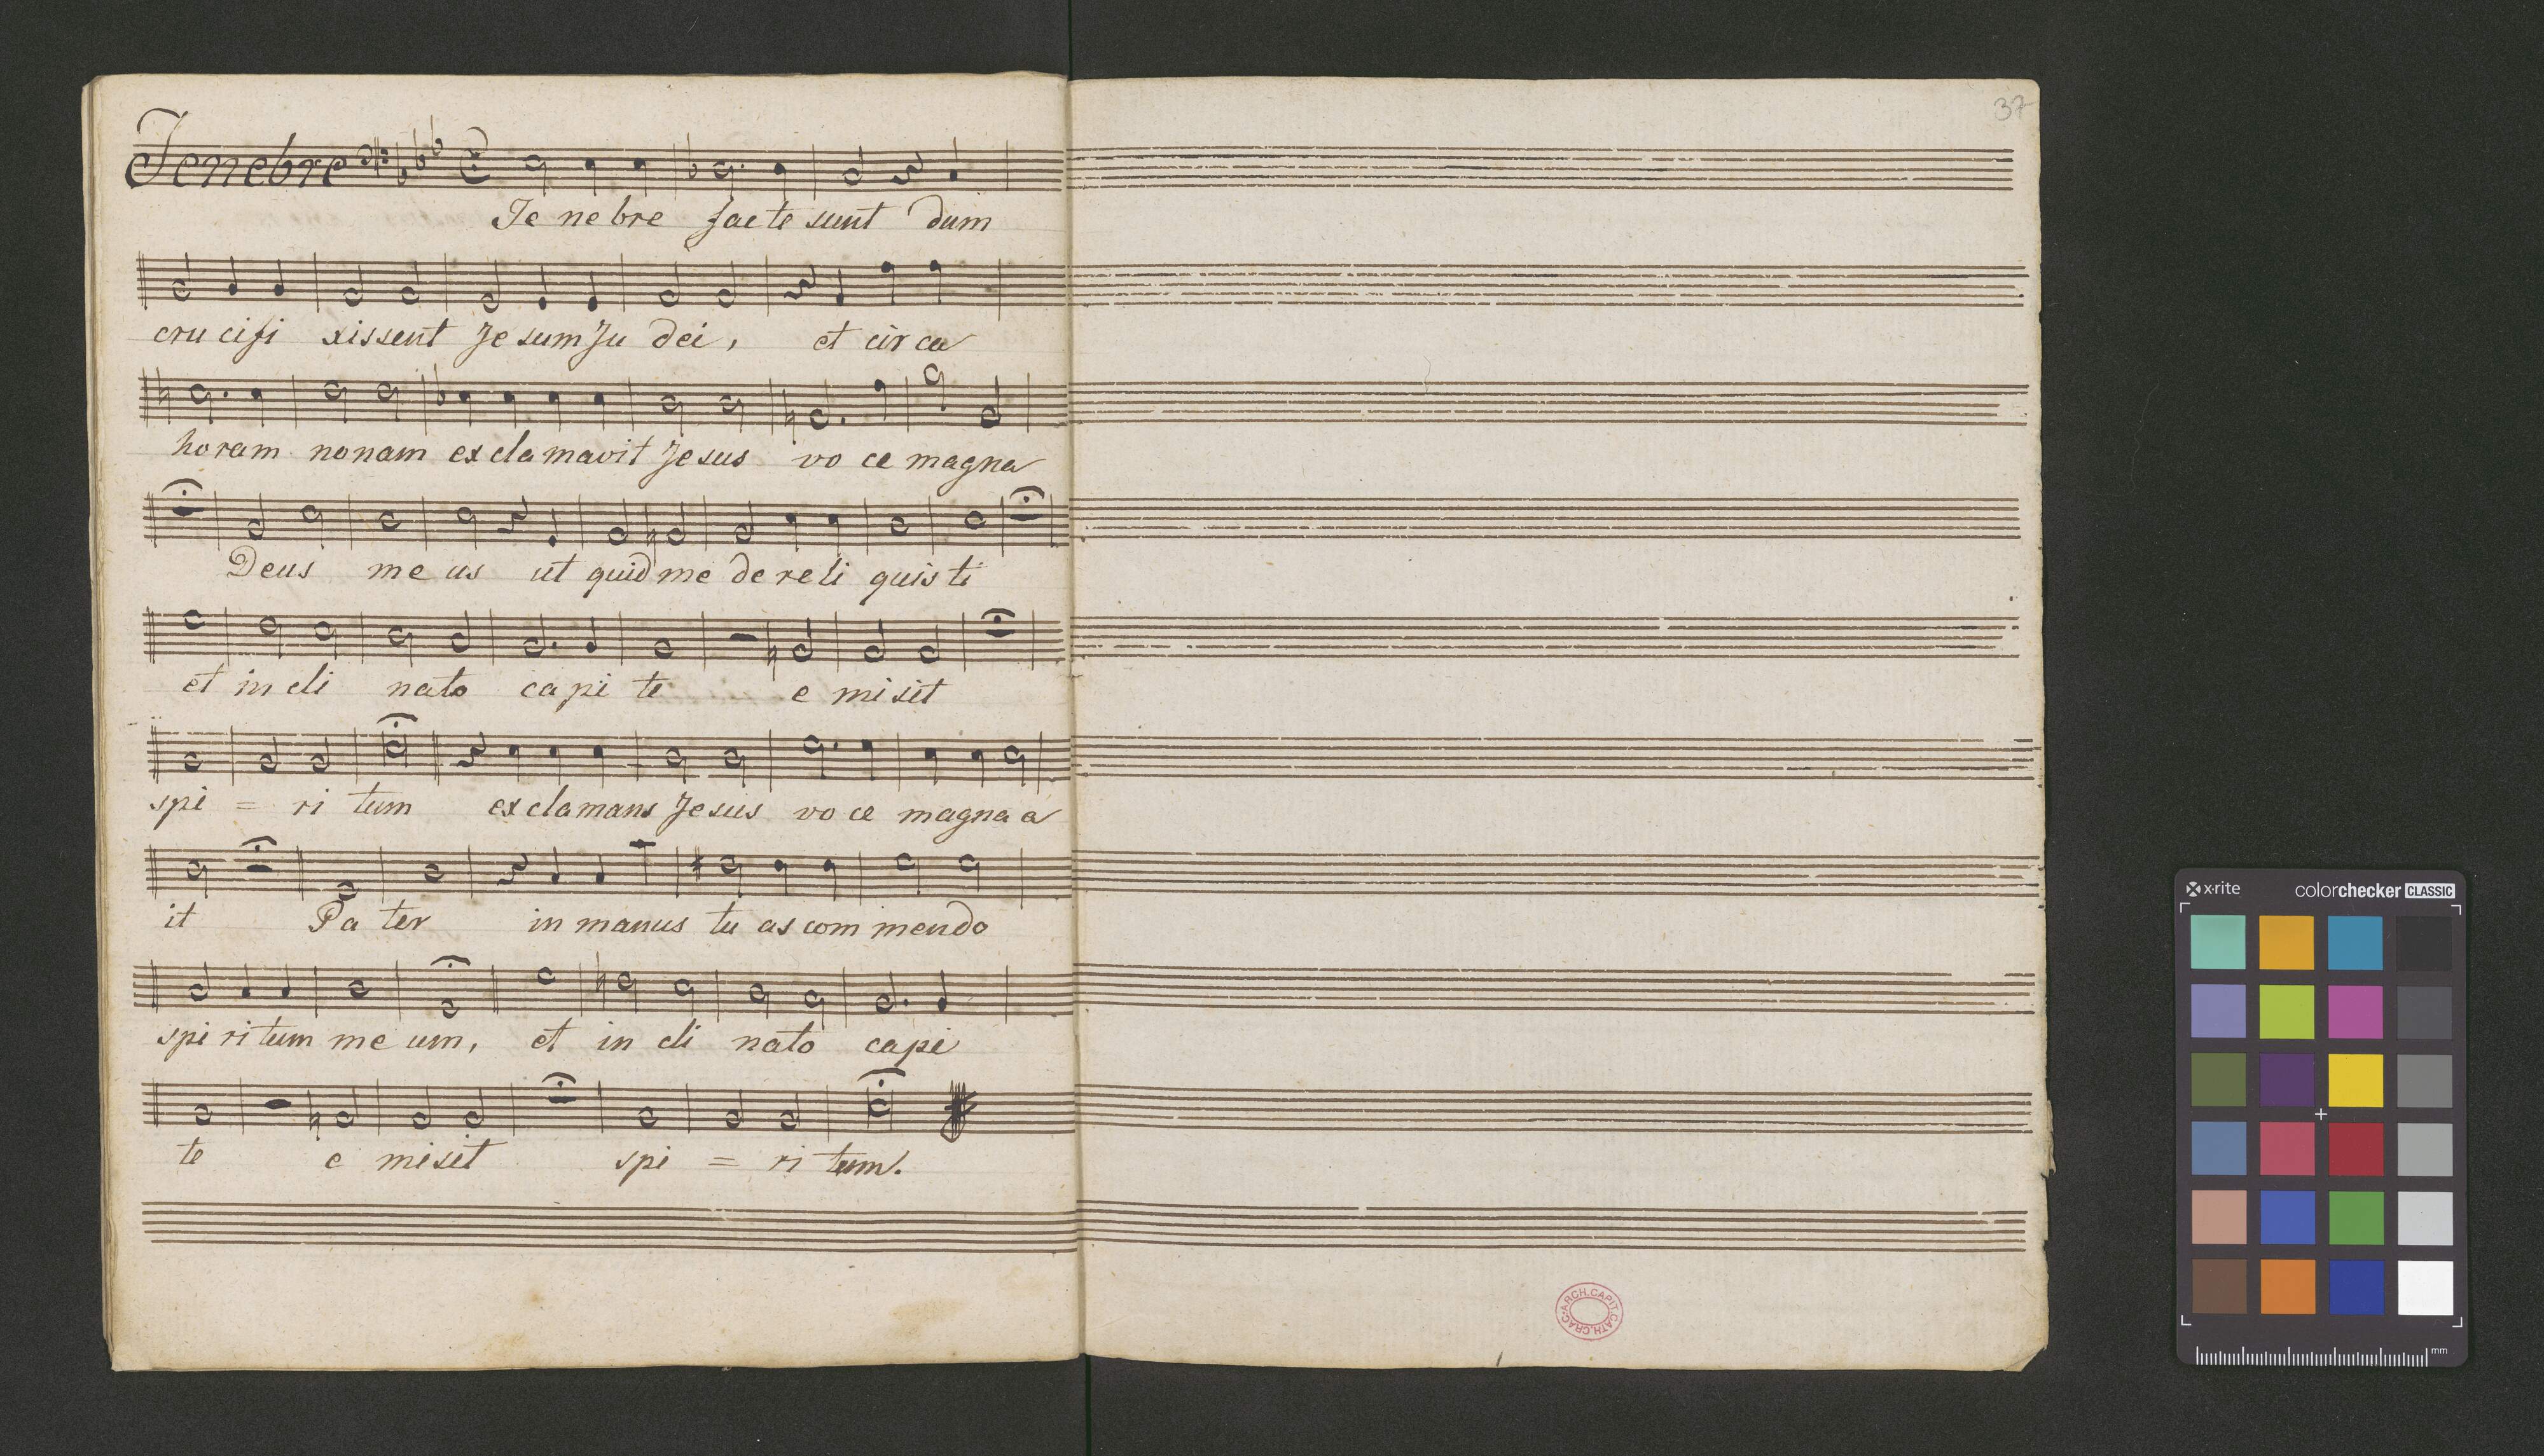 Tenebre
Te ne bre fac te sunt dum
cru cifi xissent Je sum Ju dei, et cir ca
horam nonam ex cla mavit Je sus vo ce magna
Deus me us ut quid me de re li quis ti
et in cli nato ca pi te e mi sit
spi = ri tum ex cla mans Je sus vo ce magna a
it Pa ter in manus tu as com mendo
spi ri tum me um, et in cli nato capi
te e mi sit spi = ri tum.
37
ARCH. CAPIT. CATH. CRAC.
x-rite colorchecker CLASSIC
mm